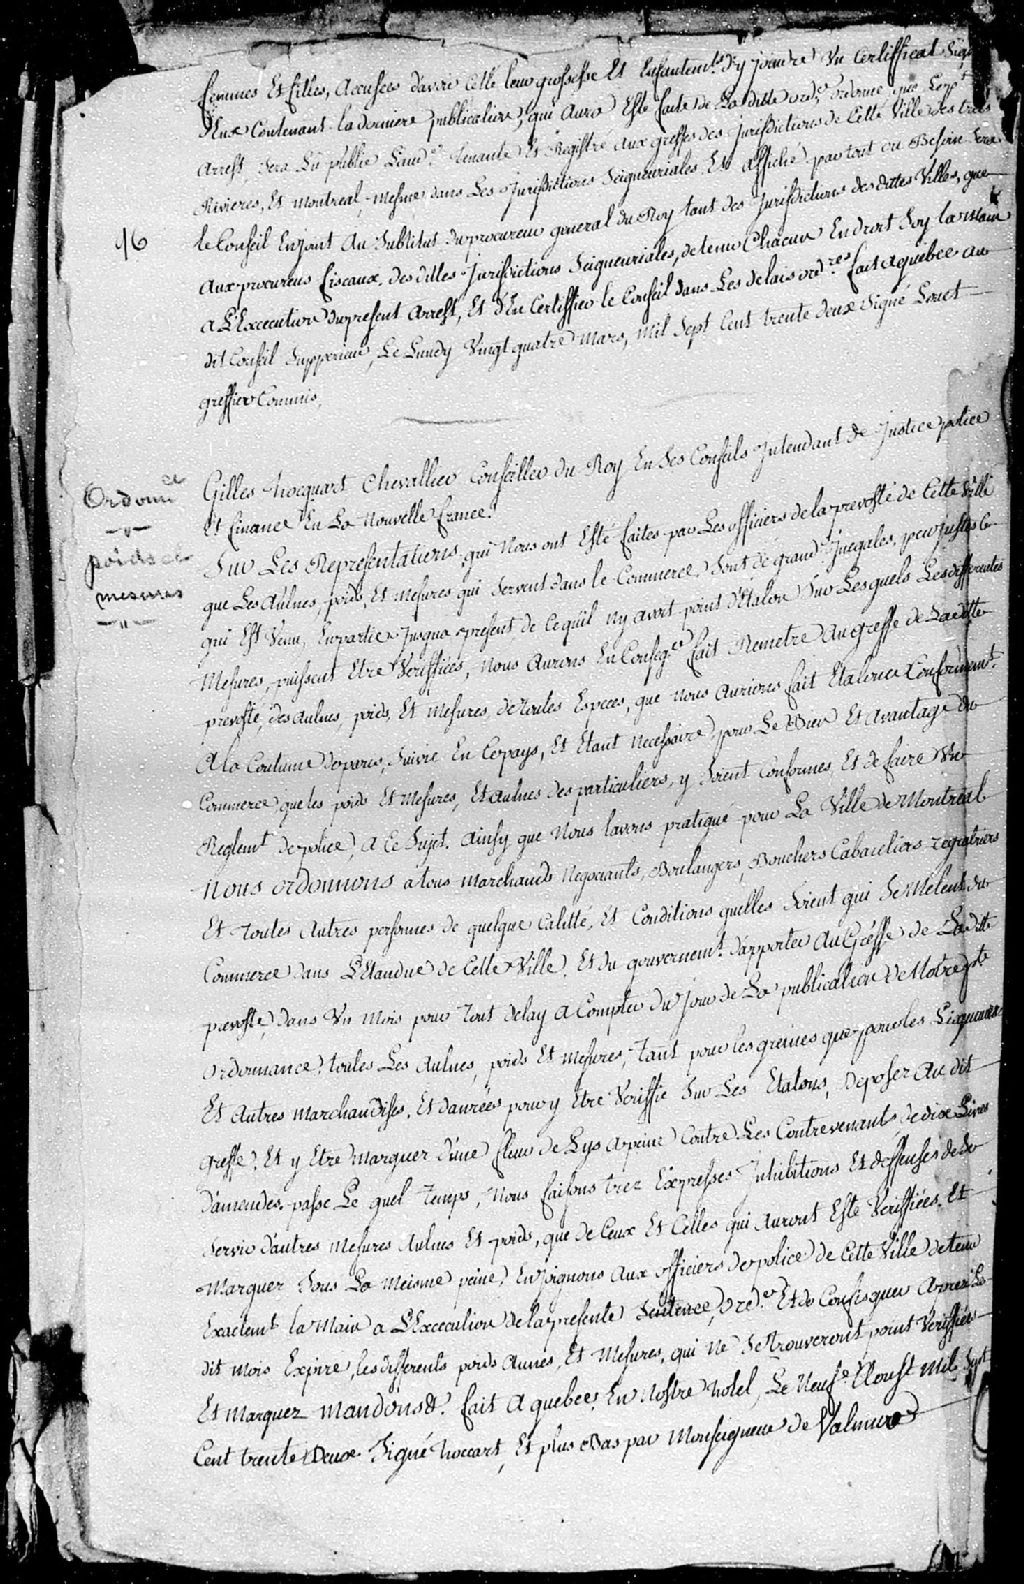 femmes Et filles, Accusées d'avoir Celé leur grossesse Et Enfantem.t d'y joindre Un Certifficat Signé
d'Eux Contenant la derniere publication, qui Aura Esté faite de La ditte ord.e ordonne que Le p.nt
Arrest, sera Lû publié L'aud.e Tenante Et Registré aux greffes des Jurisdictions de Cette Ville des trois
Rivieres, Et Montreal, mesme dans Les Jurisdictions Seigneuriales, Et affiché partout ou Besoin Sera
16
le Conseil Enjoint Au Substitut du procureur general du Roy tant des Jurisdictions des dittes Villes, que
Aux procureurs fiscaux, des dittes Jurisdictions Seigneuriales, de tenir Chacun En droit Soy la Main
a L'Execution du present Arrest, Et d'En Certiffier le Conseil dans Les delais ord.res fait a quebec au
dit Conseil Supperieur, Le Lundy Vingt quatre Mars, mil Sept Cent trente deux Signé Louet
greffier Commis,
Ordonn.ce
poids et
mesures
Gilles hocquart Chevallier Conseiller du Roy En Ses Conseils Intendant de Justice police
Et finance En La Nouvelle france.
Sur Les Representations, qui Nous ont Esté faites par Les officiers de la prevosté de Cette Ville
que Les Aulnes, poids, Et Mesures qui Servent dans le Commerce Sont de grand Inegales, peu justes Ce
qui Est Venu, En partie Jusqua present de Ce quil ny avoit point d'Etalon Sur Lesquels Les differentes
Mesures, puissent Etre Veriffiées, Nous Aurions En Conseq.ce fait Remetre Au greffe de La ditte
prevosté, des aulnes, poids, Et Mesures, de toutes Especes, que nous Aurions fait Etalonner Conformem.t
A la Coutume de paris, Suivie En Ce pays, Et Etant necessaire, pour Le Bien Et avantage du
Commerce que les poids Et Mesures, Et aulnes des particuliers, y Soient Conformes, Et de faire Un
Reglem.t de police, a Ce Sujet. Ainsy que Nous lavons pratiqué pour La Ville de Montreal
Nous ordonnons a tous marchands Negociants, Boulangers, Bouchers Cabaretiers regratiers
Et toutes Autres personnes de quelque Calitté, Et Conditions quelles Soient qui Se Mêlent du
Commerce dans L'Etandue de Cette Ville, Et du gouvernem.t d'apporter Au Gréffe de La ditte
prevosté, dans Un Mois pour tout delay a Compter du jour de La publication de Notre p.nte
ordonnance, toutes Les Aulnes, poids Et Mesures, tant pour les graines que pour les Liqueures
Et Autres marchandises, Et danrées pour y Etre Veriffié Sur Les Etalons, Deposer Au dit
Greffe, Et y Etre Marquer d'une fleur de Lys a peine Contre Les Contrevenants, de dix Livres
d'amendes. passe Le quel temps, Nous faisons trez Expresses Inhibitions Et deffenses de Se
Servir d'autres Mesures Aulnes Et poids, que de Ceux Et Celles qui Auront Esté Veriffiées, Et
Marquer Sous La Meisme peine, Enjoignons Aux officiers de police de Cette Ville de tenir
Exactem.t la Main a L'Execution de la presente Sentence, ord.ce Et de Confisquer Apres Le
dit Mois Expiré, les differents poids Aunes, Et Mesures, qui Ne Se trouveront point Veriffiées
Et Marquez Mandons &. fait A quebec, En Nostre hotel, Le Neuf.e Aoust Mil Sept
Cent trente Deux Signé hoccart, Et plus Bas par Monseigneur de Valmur